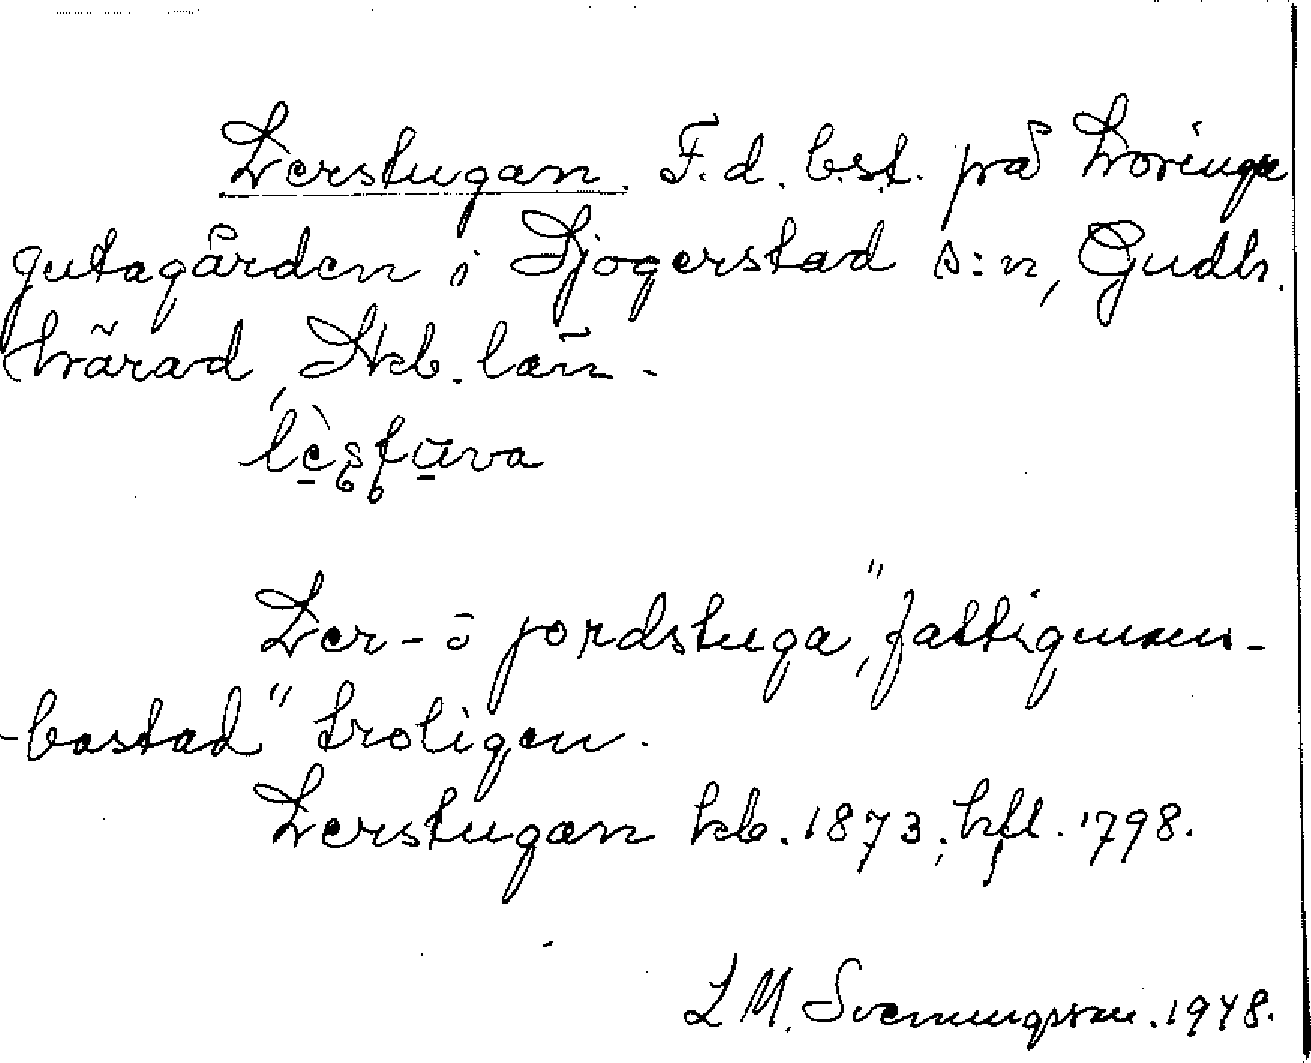 Lerstugan F.d. bst. på Horinga
gutagården i Sjogerstad s:n, Gudh.
härad, Skb. län.
lèsstūva
Ler- o jordstuga, "fattigmans-
-bostad" troligen.
Lerstugan kb. 1873; hfl. 1798.
L M. Svenungsson. 1948.